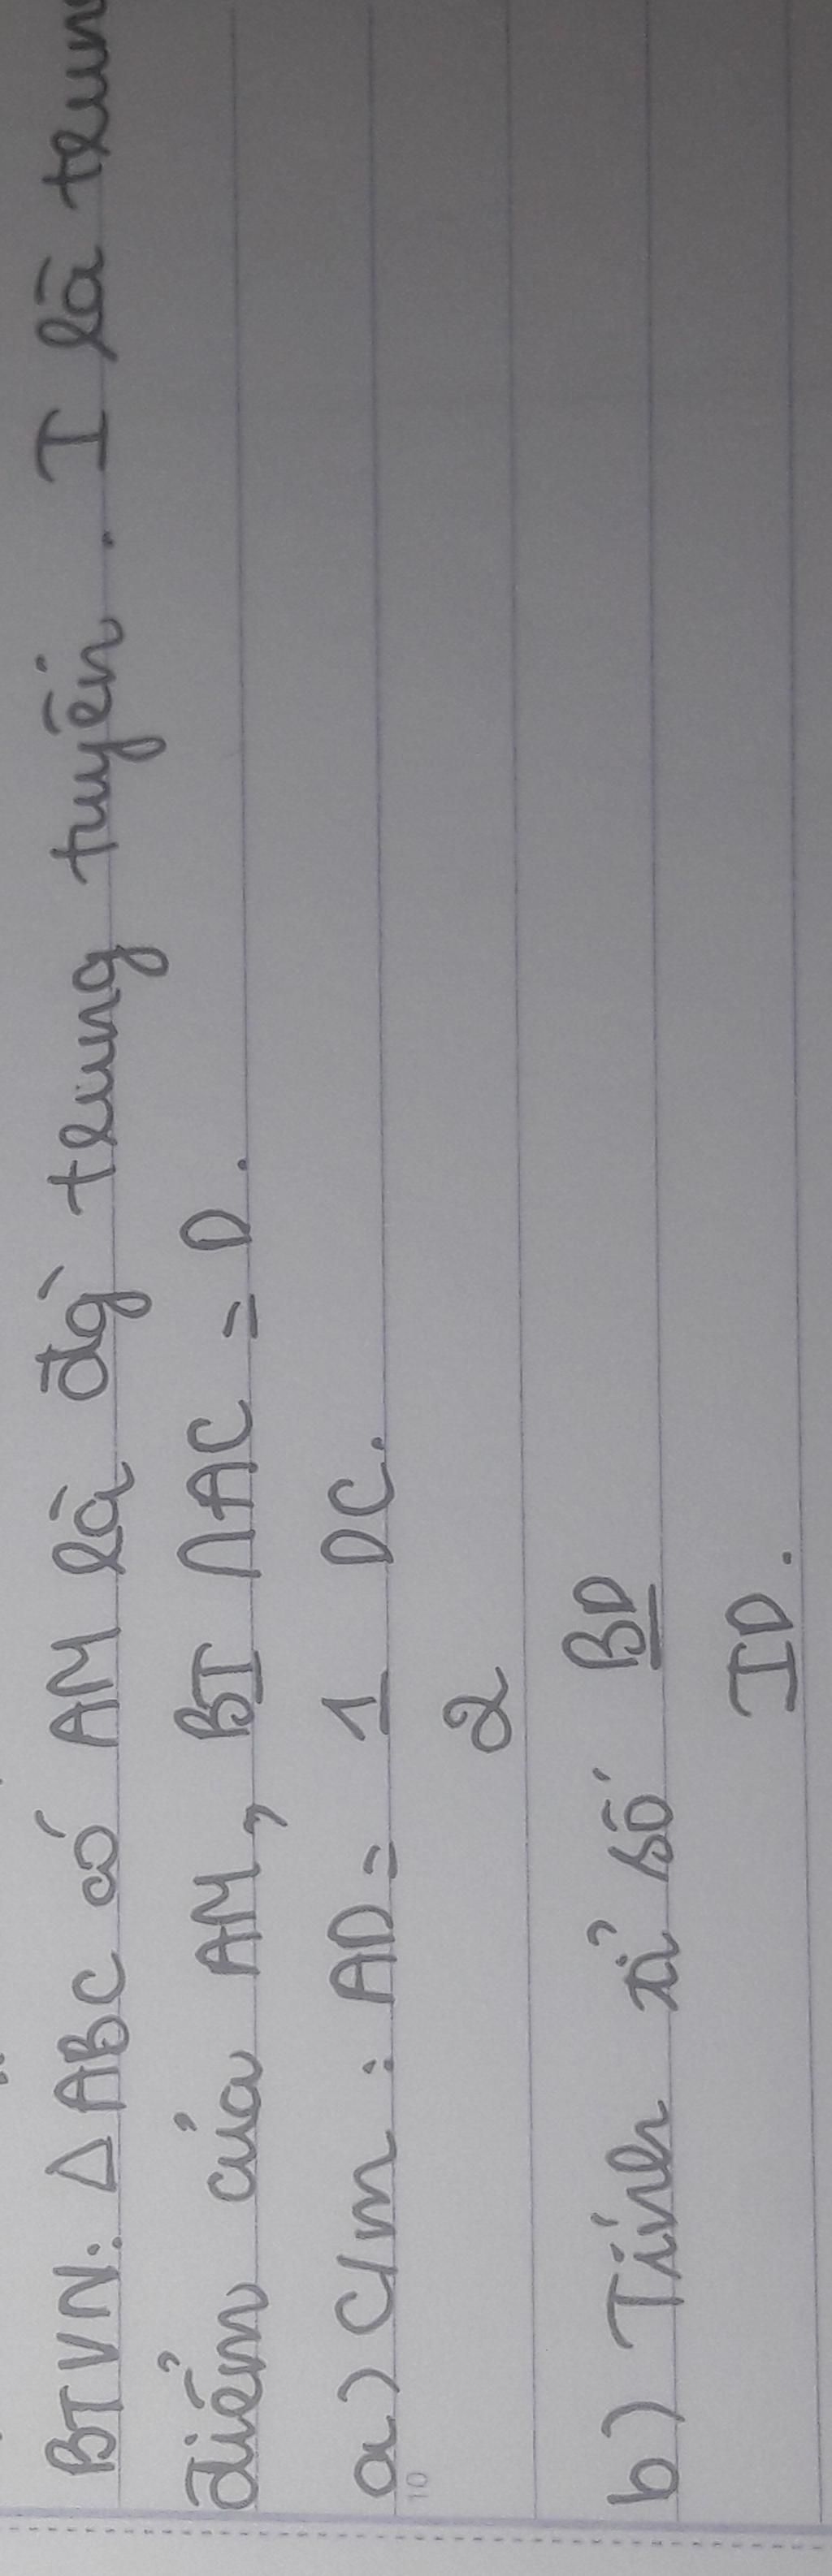 BTVN: △ ABC có AM là đg̀ trung tuyến. I là trun
điểm của AM, BI ∩ AC = D.
a) C/m : AD = 1 DC.
2
10
b) Tính tỉ số BD
ID.